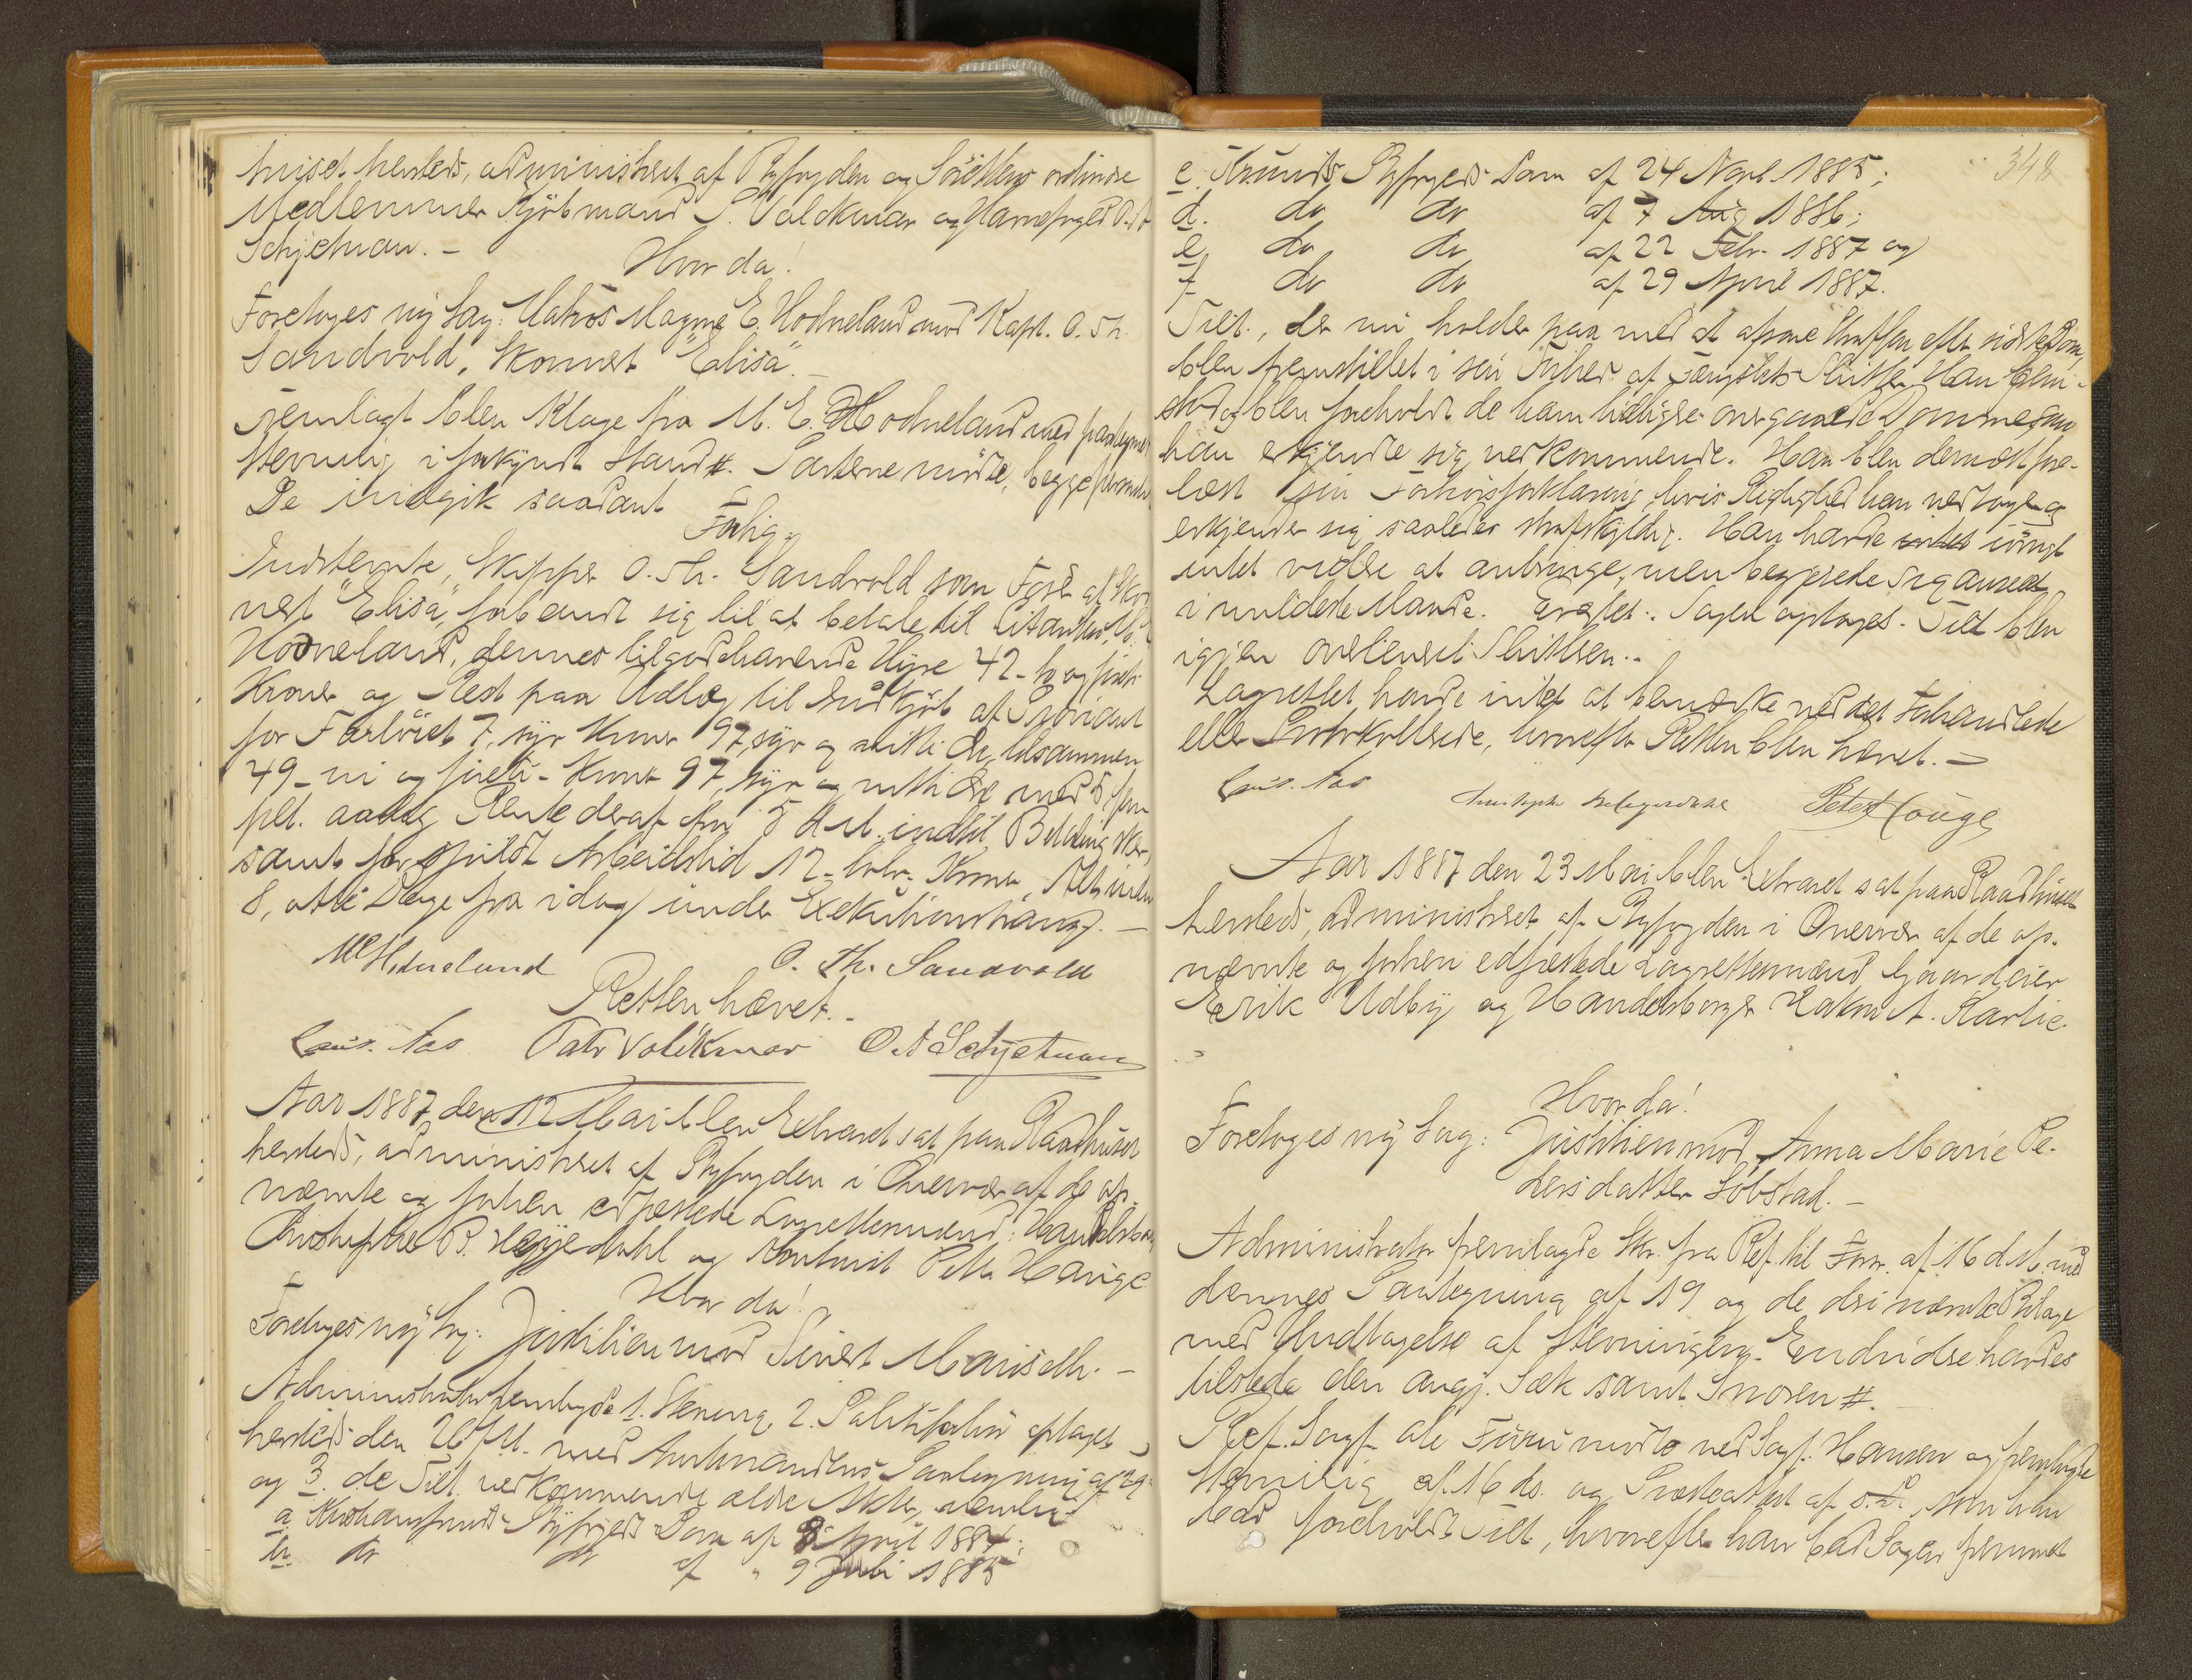 huset hersteds, administreret af Byfogden og Sörettens ordinære
Medlemmer Kjöbmand P. Volckmar og Havnefoged O. A.
Schjetnan. –
Hvor da!
Foretoges ny Sag: Matros Magne E. Hodneland mod Kapt. O. Th.
Sandvold, Skonnert "Elisa". –
Fremlagt blev Klage fra M. E. Hodneland med paategnet
Stevning i forkyndt Stand #. Parterne mödte, begge personlig.
De indgik saadant
Forlig.
Indstevnte, Skipper O. Th. Sandvold som Förer af Skon
nert "Elisa", forbandt sig til at betale til Citanten, M. E.
Hodneland, dennes tilgodehavende Hyre 42 – to og firti
Kroner og Rest paa Udlæg til Indkjöb af Proviant
for Fartöiet 7, syv Kroner 97, syv og nitti Öre, tilsammen
49 – ni og fireti – Kroner 97, syv og nitti Öre med 5, fem
pCt. aarlig Rente deraf fra 5 d. M. indtil Betaling sker,
samt for spildt Arbeidstid 12 – tolv – Kroner, Alt inden
8, otte Dage fra idag under Exekutionstvang. –
M E Hodneland O. Th. Sandvold
Retten hævet. –
Chris. Aas Patr Volckmar O A Schjetnan
Aar 1887 den 12 Mai blev Extraret sat paa Raadhuset
hersteds, administreret af Byfogden i Overvær af de op-
nævnte og forhen edfæstede Lagrettemænd: Handelsborger
Christopher B. Heyerdahl og Kontorist Peter Hauge
Hvor da!
Foretoges ny Sag: Justitien mod Sivert –
Administrator fremlagde 1. Stevning, 2. Politiforhör optaget
hersteds den 26 f. M. med Amtmandens Paategning af 29.
og 3. de Tilt. vedkommende ældre Akter, nemlig
a. Kristiansunds Byfogeds Dom af 8 April 1884;
b. do do af " 9 Juli 1885
348
c. Kr.sunds Byfogeds Dom af 24 Novb. 1885;
d. do do af 7 Aug 1886;
e. do do af 22 Febr. 1887 og
f. do do af 29 April 1887.
Tilt., der nu holder paa med at afsone Straffen efter sidste Dom,
blev fremstillet i sin Frihed af Fængslets Slutter. Han blev
og blev foreholdt de ham tidligere overgaaede Domme som
han erkjendte sig vedkommende. Han blev dernæst fore-
læst sin Forhörsforklaring, hvis Rigtighed han vedtoges og
erkjender sig saaledes strafskyldig. Han havde intet iövrigt
intet videre at anbringe, men begjerede sig anseet
i mildeste Maade. Eragtet: Sagen optages. Tilt blev
igjen overleveret Slutteren. –
Lagrettet havde intet at bemærke ved det Forhandlede
eller Protokollerede, hvorefter Retten blev hævet. –
Chris. Aas Christopher Heyerdahl Peter Hauge
Aar 1887 den 23 Mai blev Extraret sat paa Raadhuset
hersteds, administreret af Byfogden i Overvær af de op-
nævnte og forhen edfæstede Lagrettemænd Gaardeier
Erik Udby og Handelsborger Hakon A. Karlie.
Hvor da!
Foretoges ny Sag: Justitien mod Anna Marie Pe-
dersdatter Löbstad. –
Administrator fremlagde Skr. fra Ref. til Forr. af 16 d. M. med
dennes Paategning af 19 og de deri nævnte Bilage
med Undtagelse af Stevningen. Endvidere havdes
tilstede den angj. Sæk samt Snoren #.
Ref. Sagf. Ole Furu mödte ved Sagf. Hansen og fremlagde
Stevning af 16 ds. og Præsteattest af s. D., som han
bad foreholdt Tilt, hvorefter han bad Sagen fremmet